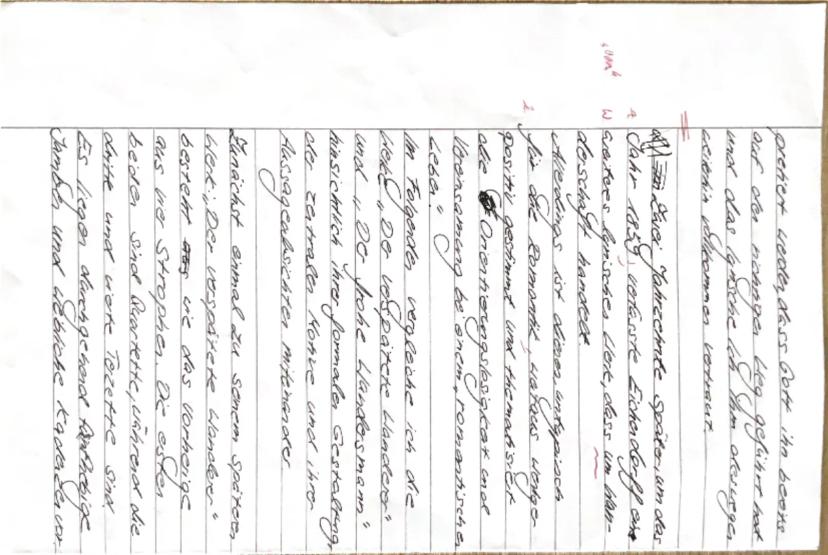 worden, dass Gott ihn bereits
auf den richtigen Weg geführt hat
und das lyrische Ich ihm deswegen
weiterhin vollkommen vertraut.
Zwei Jahrzehnte später, um das
A Jahr 1854, verfasste Eichendorff ein
W weiteres lyrisches Werk, dass um Wan-
derschaft handelt.
Allerdings ist dieses, untypisch
Z für die Romantik, weitaus weniger
positiv gestimmt und thematisiert
die Orientierungslosigkeit und
Vereinsamung bei einem „romantischen
Leben."
Im Folgenden vergleiche ich die
Werke „Der verspätete Wanderer"
und „Der frohe Wandersmann"
hinsichtlich ihrer formalen Gestaltung,
der zentralen Motive und ihrer
Aussageabsichten miteinander.
Zunächst einmal zu seinem späteren
Werk: „Der verspätete Wanderer"
besteht wie das vorherige
aus vier Strophen. Die ersten
beiden sind Quartette, während die
dritte und vierte Terzette sind.
Es liegen durchgehend fünfhebige
Jamben und weibliche Kadenzen vor.